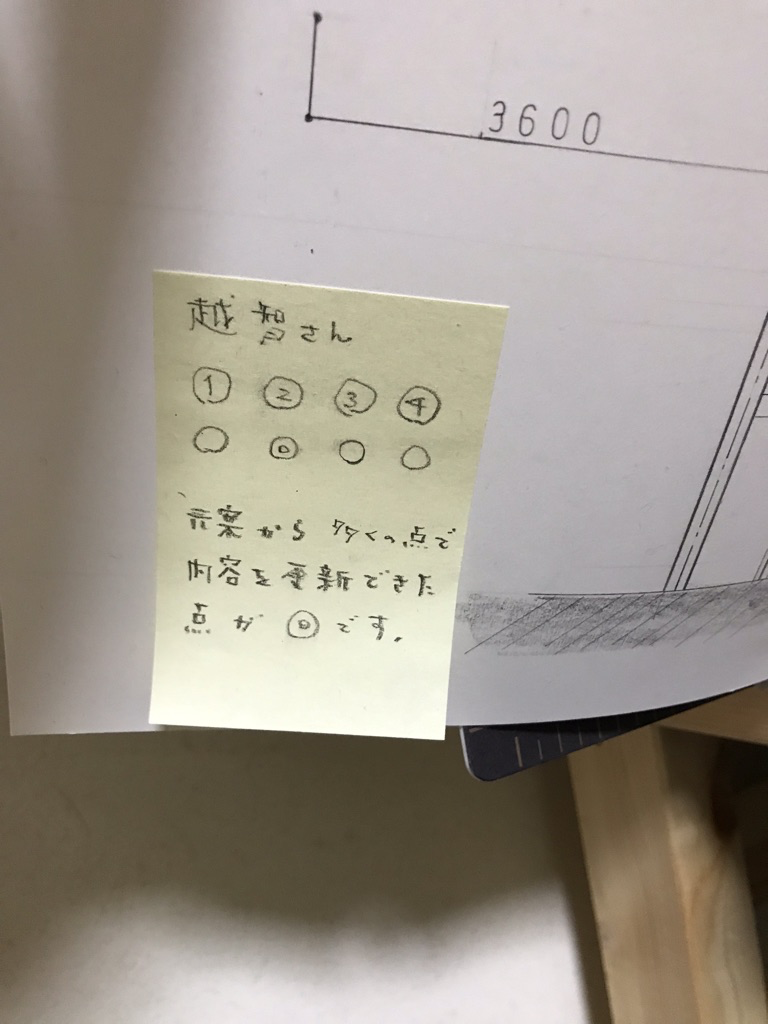 3600
越智さん
① ② ③ ④
○ ◎ ○ ○
元案から多くの点で
内容を更新できた
点が◎です。